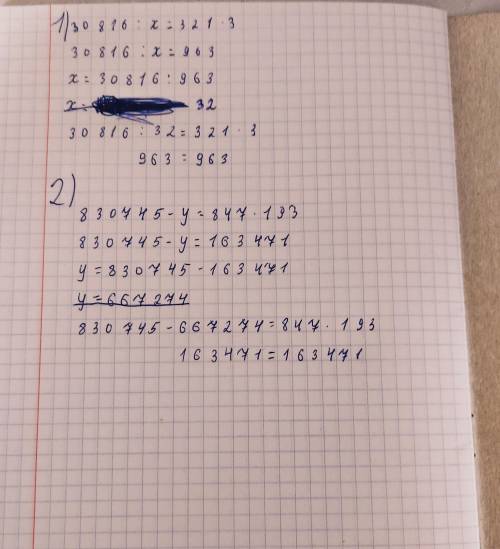 1) 30816 : x = 321 · 3
30816 : x = 963
x = 30816 : 963
x = 32
30816 : 32 = 321 · 3
963 = 963
2)
830745 - y = 847 · 193
830745 - y = 163471
y = 830745 - 163471
y = 667274
830745 - 667274 = 847 · 193
163471 = 163471